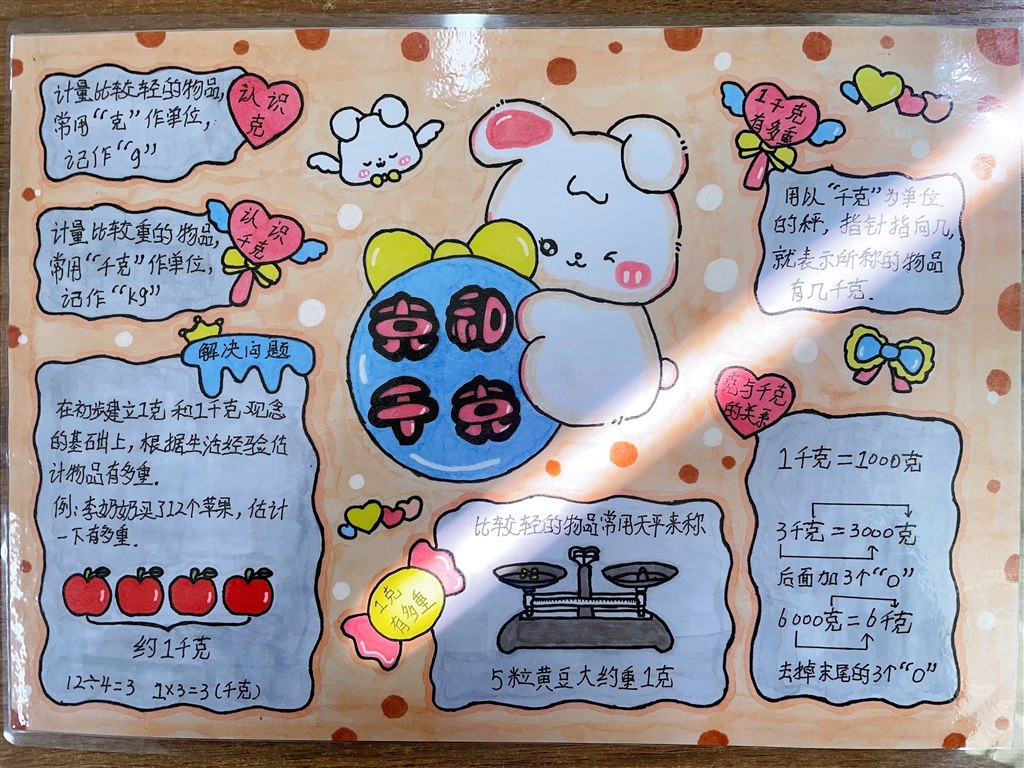 计量比较轻的物品,
常用“克”作单位,
记作“g”
认识
克
计量比较重的物品,
常用“千克”作单位,
记作“kg”
认识
千克
解决问题
在初步建立1克和1千克观念
的基础上,根据生活经验估
计物品有多重.
例:李奶奶买了12个苹果,估计
一下有多重.
约1千克
12÷4=3 1×3=3(千克)
克和
千克
1克
有多重
比较轻的物品常用天平来称
5粒黄豆大约重1克
1千克
有多重
用以“千克”为单位
的秤,指针指向几,
就表示所称的物品
有几千克.
克与千克
的关系
1千克=1000克
3千克=3000克
后面加3个“0”
6000克=6千克
去掉末尾的3个“0”